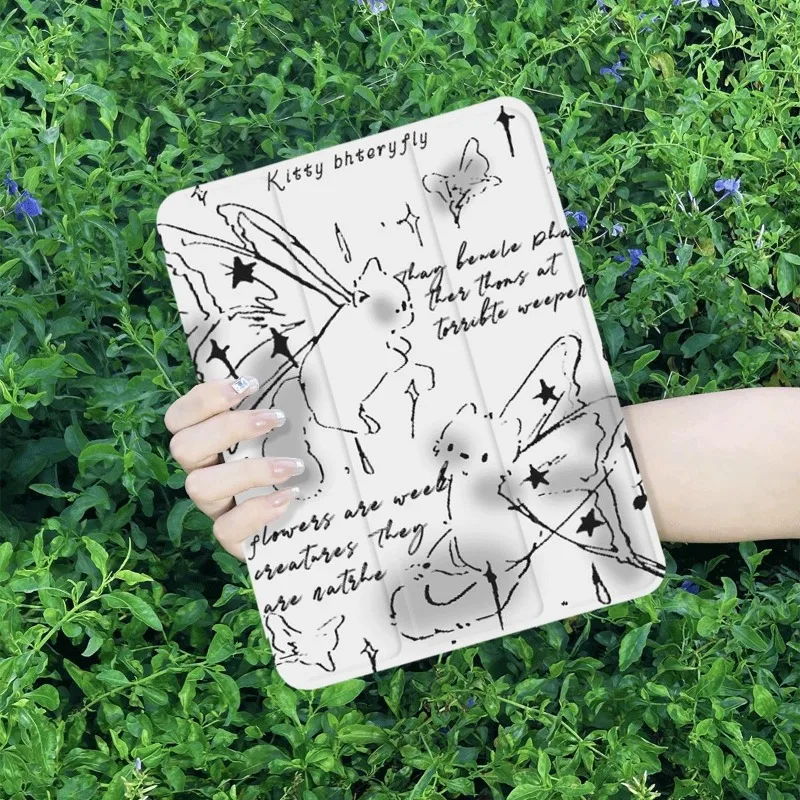 Kitty bhteryfly
thay bewele pha
ther thons at
torrible weepen
flowers are weel
creatures they
are natrhe